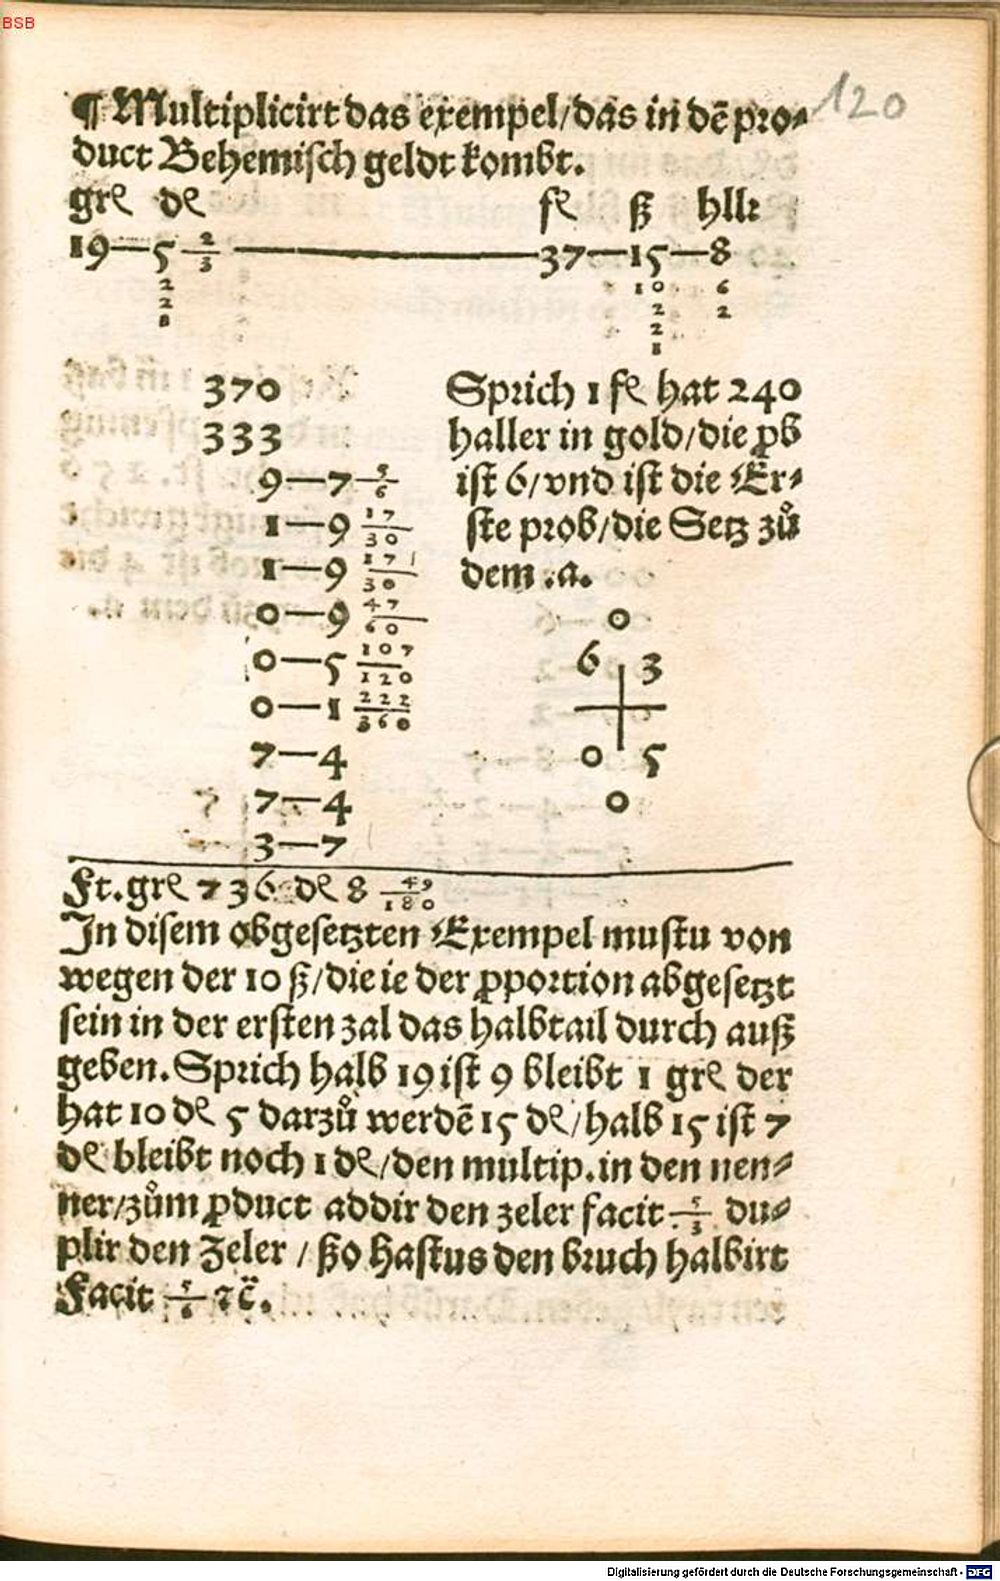 BSB
120
¶ Multiplicirt das exempel/das in dē pro⸗
duct Behemisch geldt kombt.
grе de fe ß hllr
19—5 2/3 ————— 37—15—8
2 10 6
2 2 2
8 2
8
370
333
9—7 5/6
1—9 17/30
1—9 17/30
0—9 47/60
0—5 107/120
0—1 222/360
7—4
7—4
3—7
Sprich 1 fe hat 240
haller in gold/die ꝓb
ist 6/vnd ist die Er⸗
ste prob/die Setz zů
dem .a.
0
6 3
0 5
0
Ft. gre 736 de 8 49/180
In disem obgesetzten Exempel mustu von
wegen der 10 ß/die ie der ꝓportion abgesetzt
sein in der ersten zal das halbtail durch auß
geben. Sprich halb 19 ist 9 bleibt 1 gre der
hat 10 de 5 darzů werdē 15 de/halb 15 ist 7
de bleibt noch 1 de/den multip. in den nen⸗
ner/zům ꝓduct addir den zeler facit 5/3 du⸗
plir den Zeler / ßo hastus den bruch halbirt
Facit 5/6 ⁊c̈.
Digitalisierung gefördert durch die Deutsche Forschungsgemeinschaft - DFG